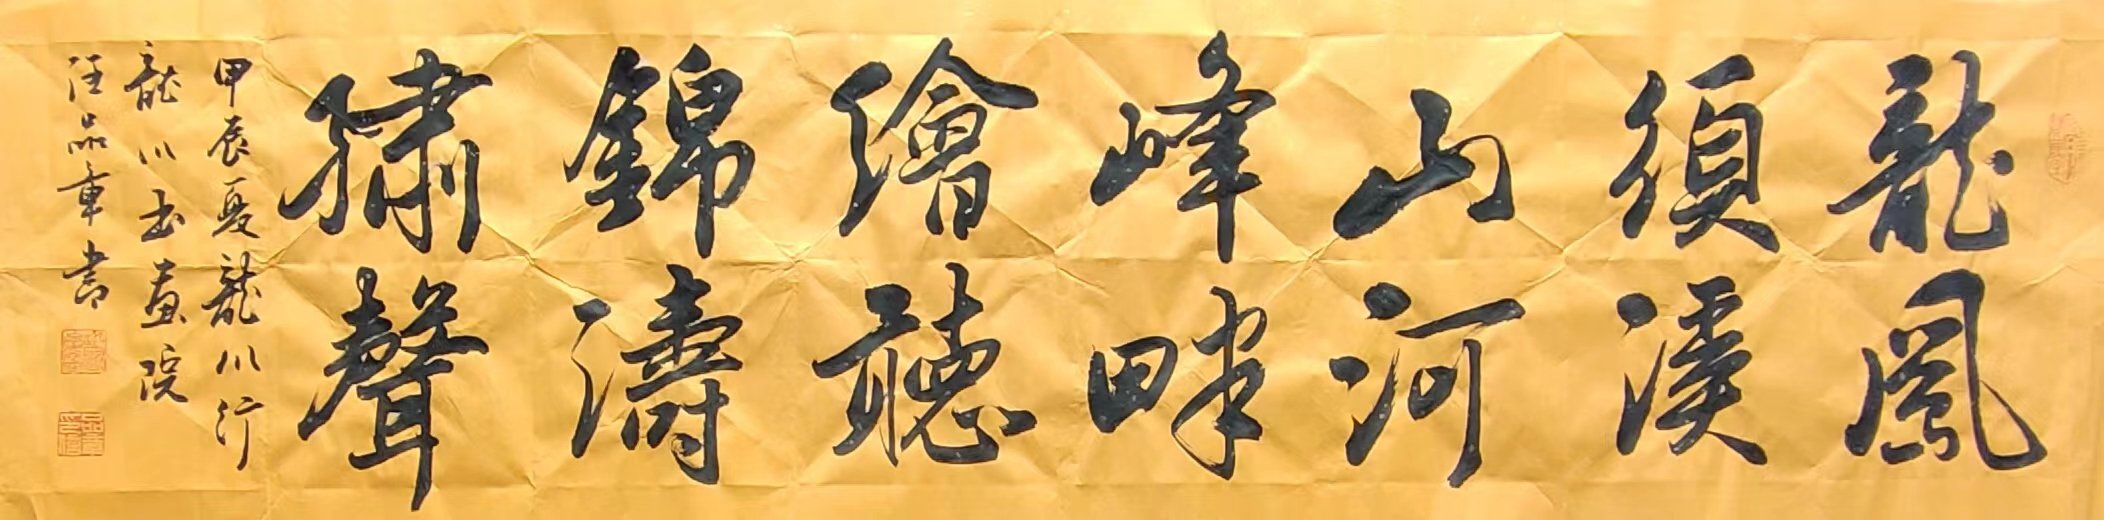 龍須山峰繪錦繡
鳳溪河畔聽濤聲
甲辰夏龍川行
龍川书畫院
汪品章書